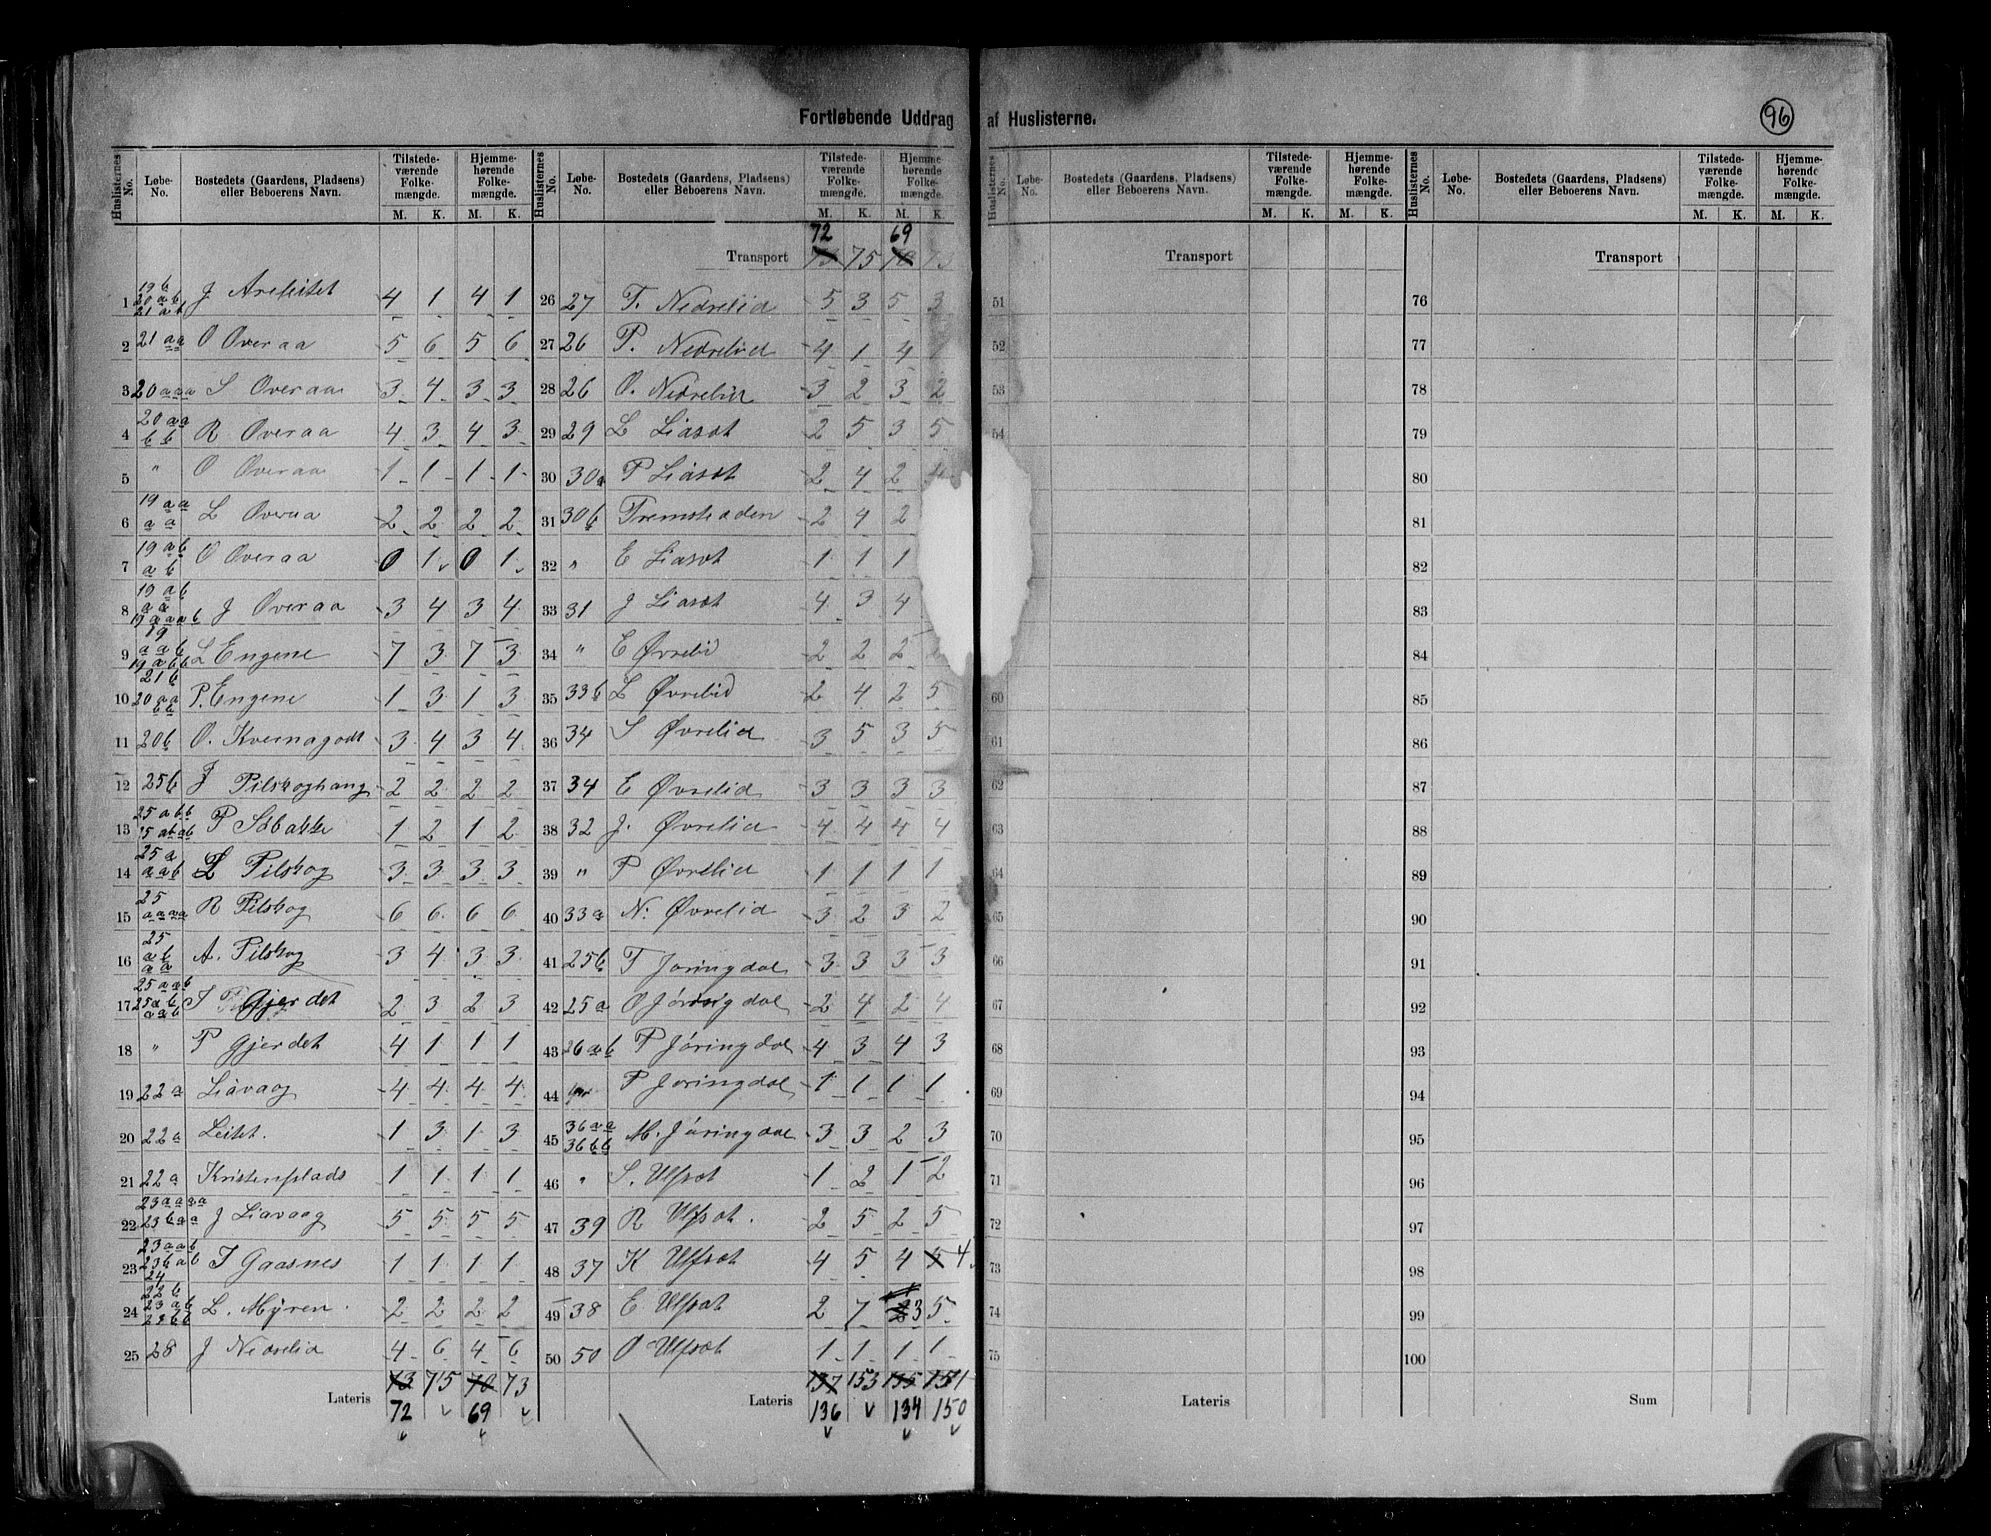 Fortløbende Uddrag af Huslisterne.
96
Huslisternes No. Løbe-No. Bostedets (Gaardens, Pladsens) eller Beboerens Navn. Tilstedeværende Folkemængde. M. K. Hjemmehørende Folkemængde. M. K.
1 19b 20ab J Areleitet 4 1 4 1
2 21aa O Øveraa 5 6 5 6
3 20aaa S Øveraa 3 4 3 3
4 20aa bb R Øveraa 4 3 4 3
5 " O Øveraa 1 1 1 1
6 19aa aa L Øveraa 2 2 2 2
7 19ab ab O Øveraa 0 1 0 1
8 19ab aa J Øveraa 3 4 3 4
9 L Engene 7 3 7 3
10 P. Engene 1 3 1 3
11 20b O. Kvernagodt 3 4 3 4
12 25b J Pilskoghaug 2 2 2 2
13 25abb P Solbakke 1 2 1 2
14 25a aab L Pilskog 3 3 3 3
15 25 aaaa R Pilskog 6 6 6 6
16 25 ab aa A. Pilskog 3 4 3 3
17 25aab 25ab aab Gjerdet 2 3 2 3
18 " P Gjerdet 4 1 1 1
19 22a Liavaag 4 4 4 4
20 22a Leitet. 1 3 1 3
21 22a Kristenplads 1 1 1 1
22 23aaaa 23baa J Liavaag 5 5 5 5
23 23aab 23bab 24 I Gaasnes 1 1 1 1
24 22b 23ab 23bb L. Myren 2 2 2 2
25 28 J Nedrelid 4 6 4 6
Lateris 73 75 70 73
72 69
Huslisternes No. Løbe-No. Bostedets (Gaardens, Pladsens) eller Beboerens Navn. Tilstedeværende Folkemængde. M. K. Hjemmehørende Folkemængde. M. K.
72 69
Transport 73 75 70
26 27 T. Nedrelid 5 3 5 3
27 26 P. Nedrelid 4 1 4
28 26 O. Nedrelid 3 2 3 2
29 29 L Liasæt 2 5 3 5
30 30a P Liasæt 2 4 2
31 30b Fremstaden 2 4 2
32 " E Liasæt 1 1 1
33 31 J Liasæt 4 3 4
34 " E Øvrelid 2 2 2
35 33b L Øvrelid 2 4 2 5
36 34 S Øvrelid 3 5 3 5
37 34 E Øvrelid 3 3 3 3
38 32 J. Øvrelid 4 4 4 4
39 " P Øvrelid 1 1 1 1
40 33a N: Øvrelid 3 2 3 2
41 25b T Jøringdal 3 3 3 3
42 25a O Jøringdal 2 4 2 4
43 26ab P Jøringdal 4 3 4 3
44 P Jøringdal 1 1 1 1
45 36aa 36bb M. Jøringdal 3 3 2 3
46 " S. Ulfsæt 1 2 1 2
47 39 R Ulfsæt. 2 5 2 5
48 37 K Ulfsæt 4 5 4 5 4
49 38 E Ulfsæt 2 7 3 5
50 50 O Ulfsæt 1 1 1 1
Lateris 137 153 135 151
136 134 150
Huslisternes No. Løbe-No. Bostedets (Gaardens, Pladsens) eller Beboerens Navn. Tilstedeværende Folkemængde. M. K. Hjemmehørende Folkemængde. M. K.
Transport
51
52
53
54
60
61
62
63
64
65
66
67
68
69
70
71
72
73
74
75
Lateris
Huslisternes No. Løbe-No. Bostedets (Gaardens, Pladsens) eller Beboerens Navn. Tilstedeværende Folkemængde. M. K. Hjemmehørende Folkemængde. M. K.
Transport
76
77
78
79
80
81
82
83
84
85
86
87
88
89
90
91
92
93
94
95
96
97
98
99
100
Sum